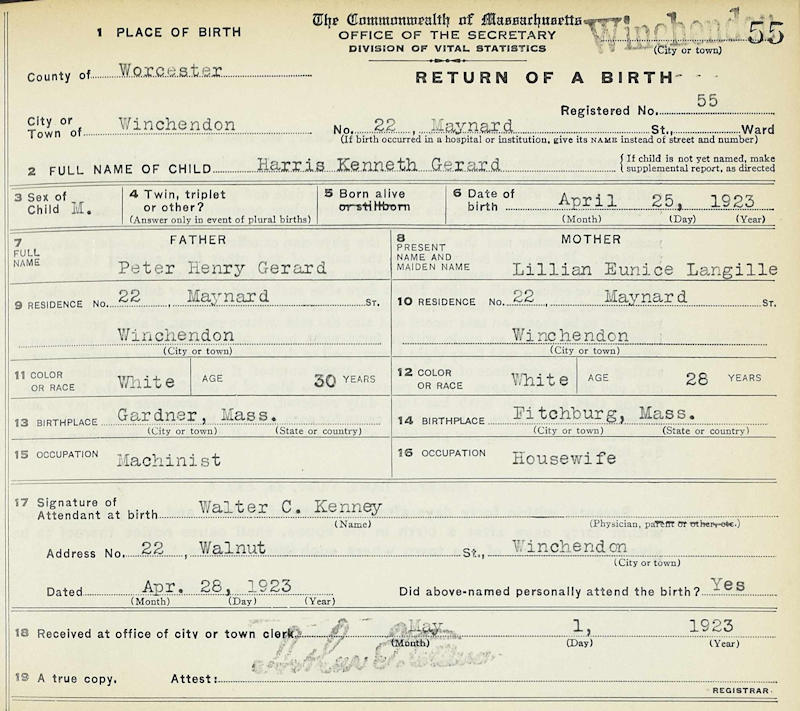 The Commonwealth of Massachusetts
Winchendon 55
1 PLACE OF BIRTH
OFFICE OF THE SECRETARY
DIVISION OF VITAL STATISTICS
(City or town)
County of Worcester
RETURN OF A BIRTH
Registered No. 55
City or Town of Winchendon No. 22, Maynard St., Ward
(If birth occurred in a hospital or institution, give its NAME instead of street and number)
2 FULL NAME OF CHILD Harris Kenneth Gerard { If child is not yet named, make supplemental report, as directed
3 Sex of Child M. 4 Twin, triplet or other? 5 Born alive or stillborn 6 Date of birth April 25, 1923
(Answer only in event of plural births) (Month) (Day) (Year)
7 FATHER 8 MOTHER
FULL NAME Peter Henry Gerard PRESENT NAME AND MAIDEN NAME Lillian Eunice Langille
9 RESIDENCE No. 22, Maynard St. 10 RESIDENCE No. 22, Maynard St.
Winchendon Winchendon
(City or town) (City or town)
11 COLOR OR RACE White AGE 30 YEARS 12 COLOR OR RACE White AGE 28 YEARS
13 BIRTHPLACE Gardner, Mass. 14 BIRTHPLACE Fitchburg, Mass.
(City or town) (State or country) (City or town) (State or country)
15 OCCUPATION Machinist 16 OCCUPATION Housewife
17 Signature of Attendant at birth Walter C. Kenney
(Name) (Physician, parent or other, etc.)
Address No. 22, Walnut St., Winchendon
(City or town)
Dated Apr. 28, 1923 Did above-named personally attend the birth? Yes
(Month) (Day) (Year)
18 Received at office of city or town clerk May 1, 1923
(Month) (Day) (Year)
19 A true copy. Attest:
REGISTRAR